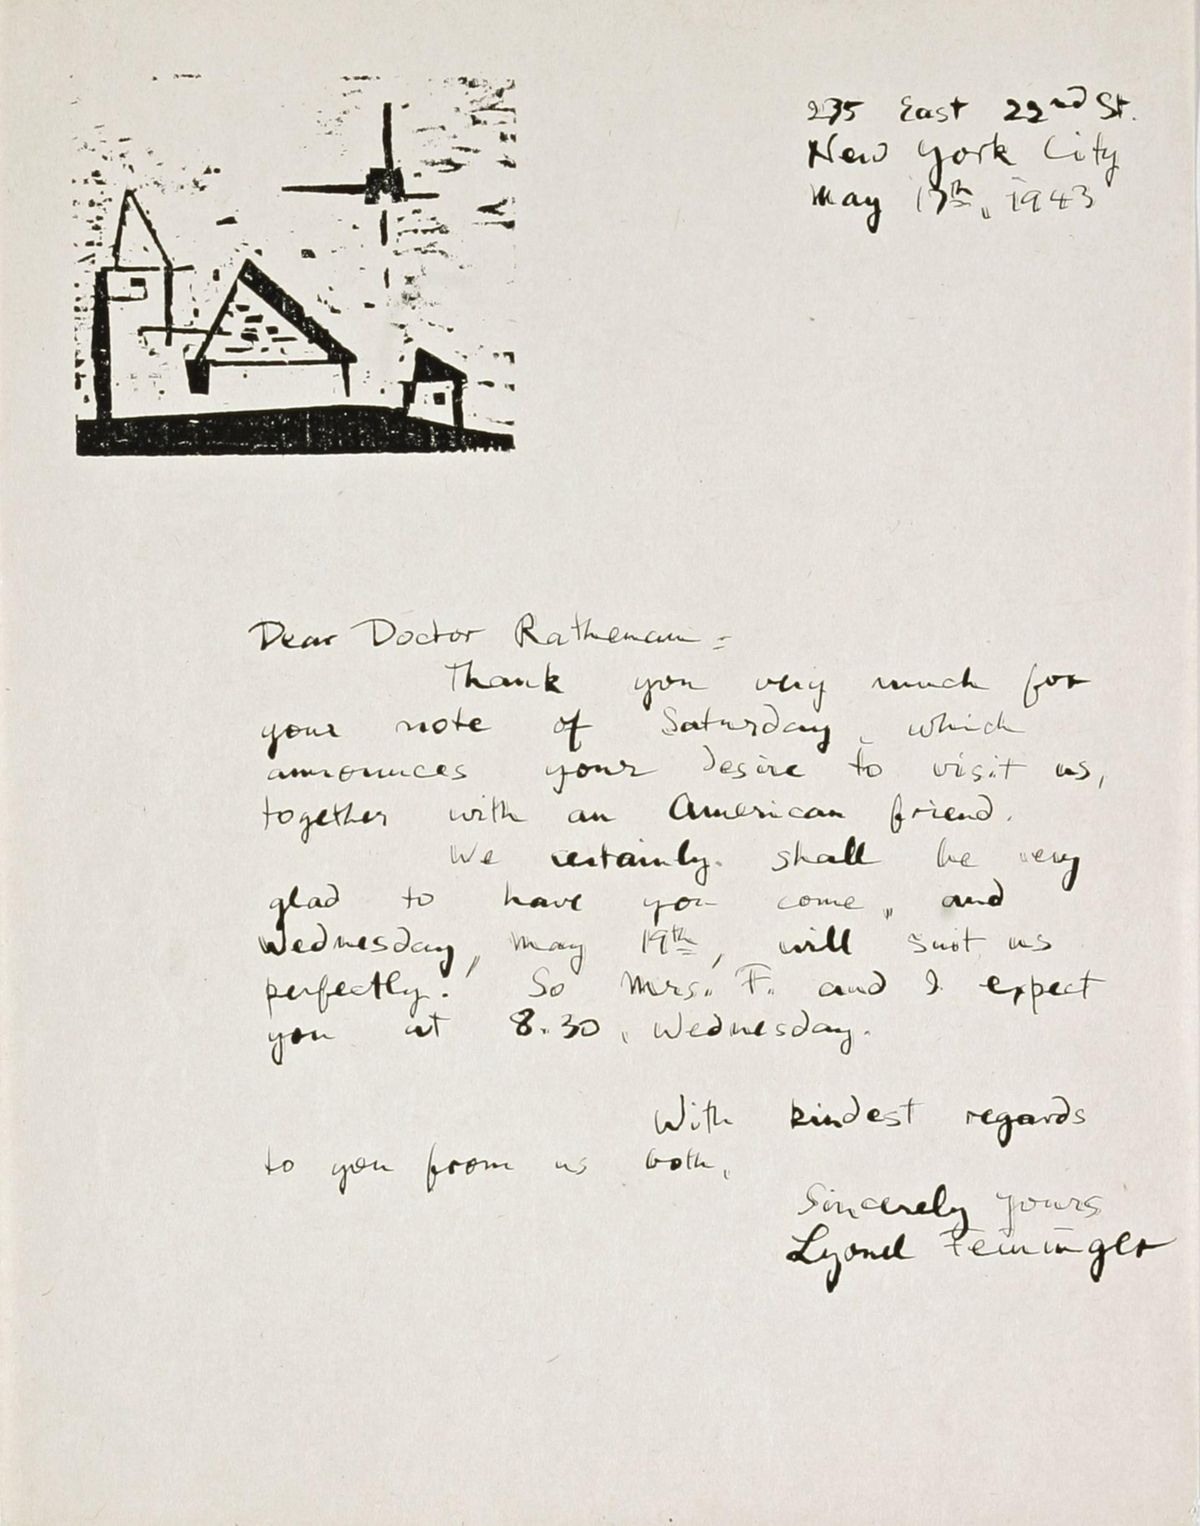 235 East 22nd St.
New York City
May 17th, 1943
Dear Doctor
Thank you very much for
your note of Saturday, which
announces your desire to visit us,
together with an American friend.
We certainly shall be very
glad to have you come, and
Wednesday, May 19th, will suit us
perfectly. So Mrs. F. and I expect
you at 8.30, Wednesday.
With kindest regards
to you from us both,
Sincerely yours
Lyonel Feininger